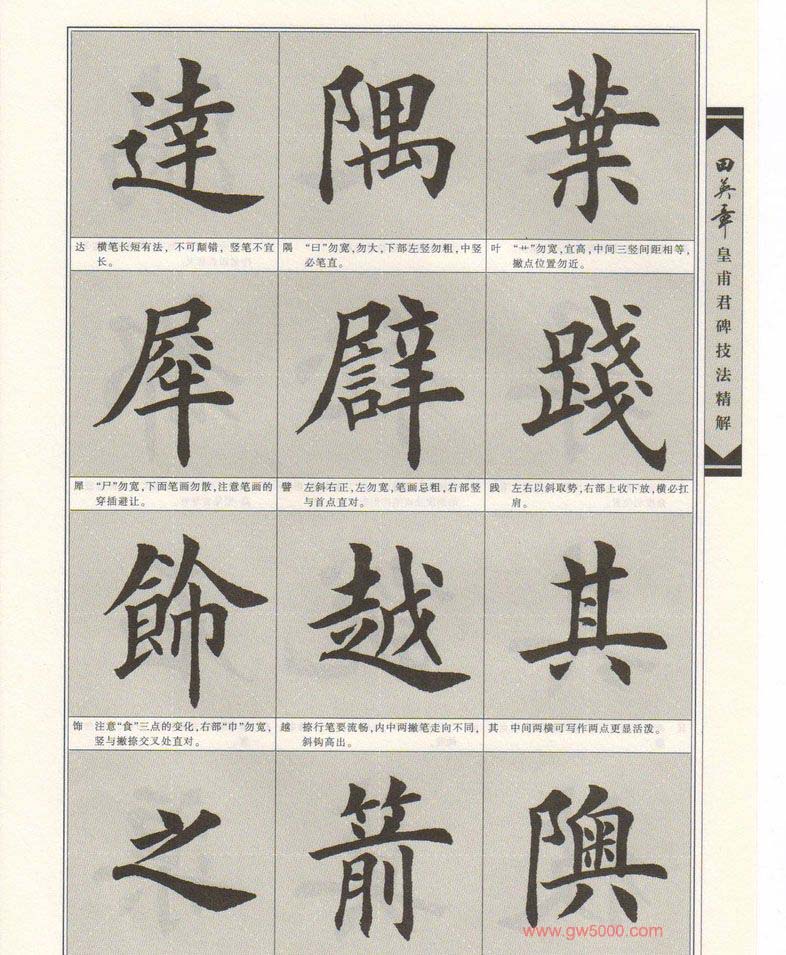 田英章
皇甫君碑技法精解
葉
叶 “艹”勿宽,宜高,中间三竖间距相等,
撇点位置勿近。
踐
践 左右以斜取势,右部上收下放,横必扛
肩。
其
其 中间两横可写作两点更显活泼。
隩
隅
隅 “曰”勿宽,勿大,下部左竖勿粗,中竖
必笔直。
譬
譬 左斜右正,左勿宽,笔画忌粗,右部竖
与首点直对。
越
越 捺行笔要流畅,内中两撇笔走向不同,
斜钩高出。
箭
達
达 横笔长短有法,不可颠错,竖笔不宜
长。
犀
犀 “尸”勿宽,下面笔画勿散,注意笔画的
穿插避让。
飾
饰 注意“食”三点的变化,右部“巾”勿宽,
竖与撇捺交叉处直对。
之
www.gw5000.com